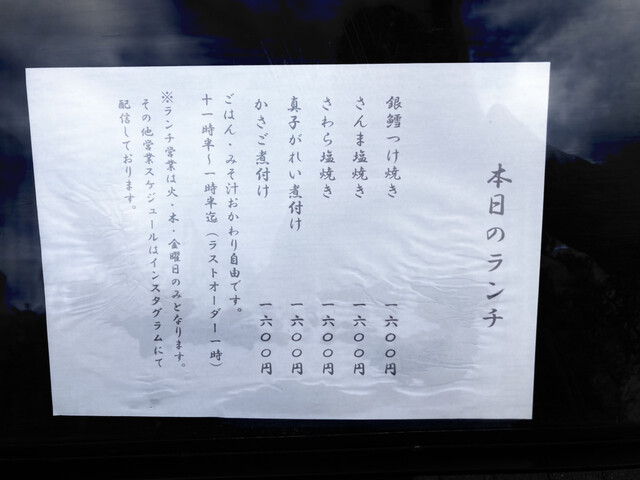 本日のランチ
銀鱈つけ焼き 一六〇〇円
さんま塩焼き 一六〇〇円
さわら塩焼き 一六〇〇円
真子がれい煮付け 一六〇〇円
かさご煮付け 一六〇〇円
ごはん・みそ汁おかわり自由です。
十一時半～一時半迄（ラストオーダー一時）
※ランチ営業は火・木・金曜日のみとなります。
その他営業スケジュールはインスタグラムにて
配信しております。